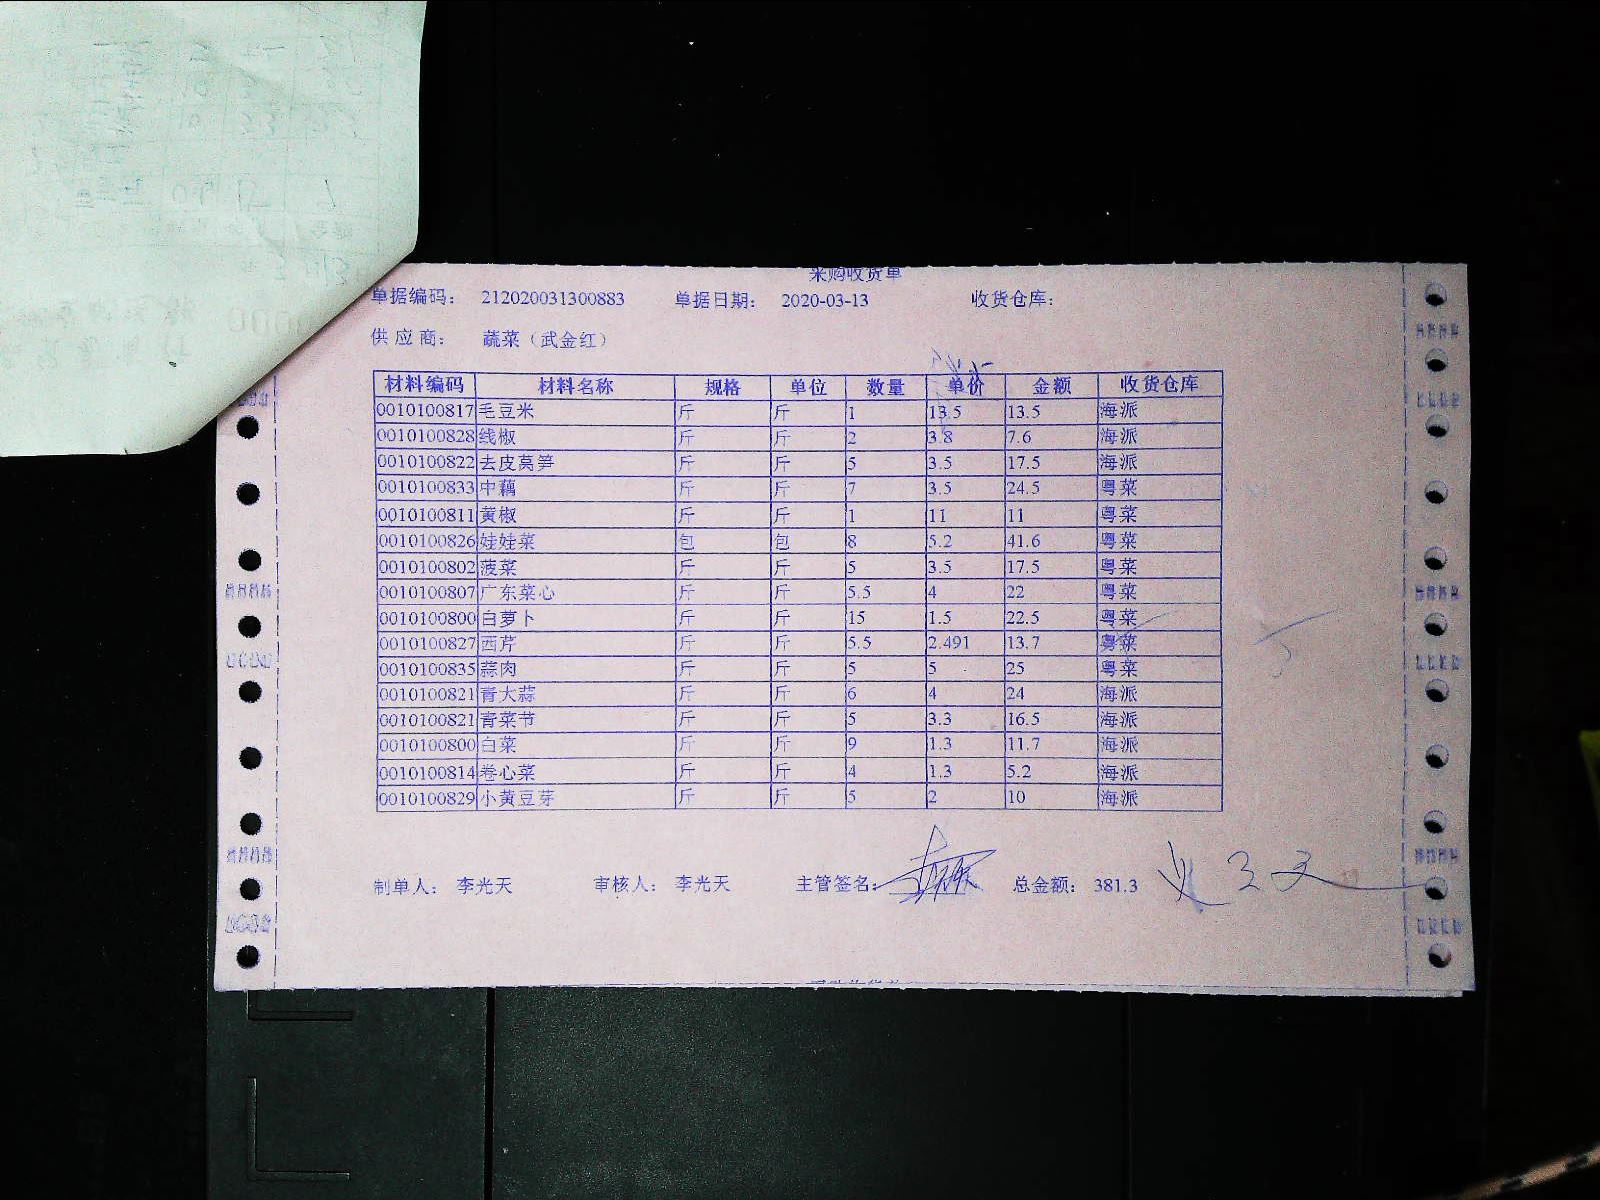 采购收货单
单据编码： 212020031300883 单据日期： 2020-03-13 收货仓库：
供 应 商： 蔬菜（武金红）
材料编码 材料名称 规格 单位 数量 单价 金额 收货仓库
0010100817 毛豆米 斤 斤 1 13.5 13.5 海派
0010100828 线椒 斤 斤 2 3.8 7.6 海派
0010100822 去皮莴笋 斤 斤 5 3.5 17.5 海派
0010100833 中藕 斤 斤 7 3.5 24.5 粤菜
0010100811 黄椒 斤 斤 1 11 11 粤菜
0010100826 娃娃菜 包 包 8 5.2 41.6 粤菜
0010100802 菠菜 斤 斤 5 3.5 17.5 粤菜
0010100807 广东菜心 斤 斤 5.5 4 22 粤菜
0010100800 白萝卜 斤 斤 15 1.5 22.5 粤菜
0010100827 西芹 斤 斤 5.5 2.491 13.7 粤菜
0010100835 蒜肉 斤 斤 5 5 25 粤菜
0010100821 青大蒜 斤 斤 6 4 24 海派
0010100821 青菜节 斤 斤 5 3.3 16.5 海派
0010100800 白菜 斤 斤 9 1.3 11.7 海派
0010100814 卷心菜 斤 斤 4 1.3 5.2 海派
0010100829 小黄豆芽 斤 斤 5 2 10 海派
制单人： 李光天 审核人： 李光天 主管签名： 总金额： 381.3